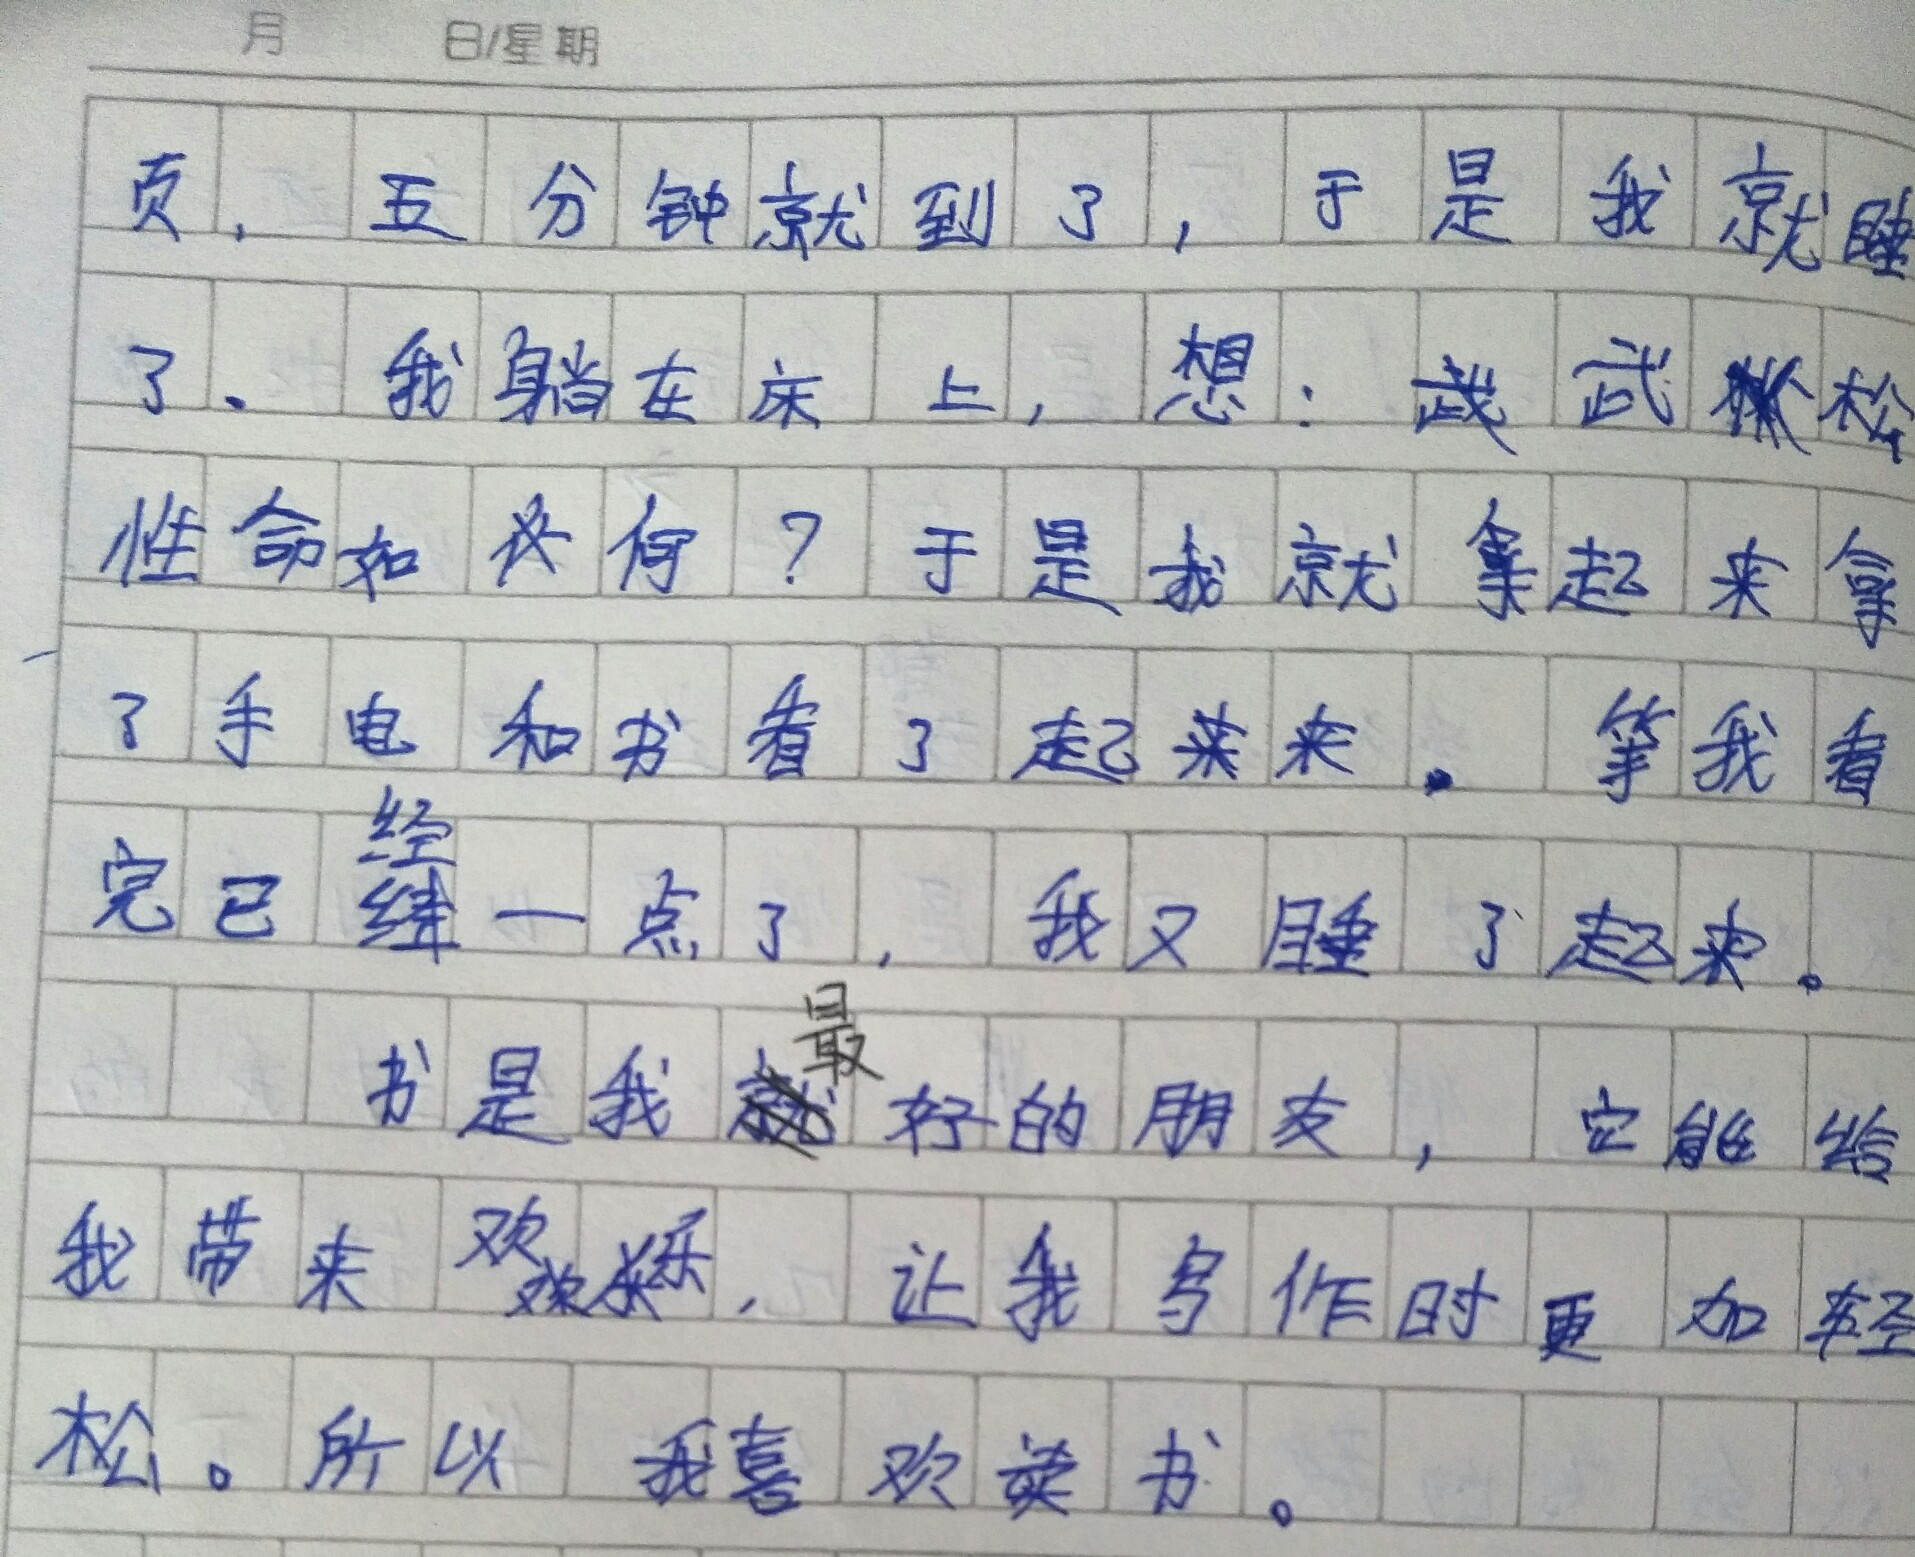 月 日/星期
页，五分钟就到了，于是我就睡
了。我躺在床上，想：武松
性命如何？于是我就拿起来拿
了手电和书看了起来。等我看
完已经一点了，我又睡了起来。
书是我最好的朋友，它能给
我带来欢乐，让我写作时更加轻
松。所以我喜欢读书。